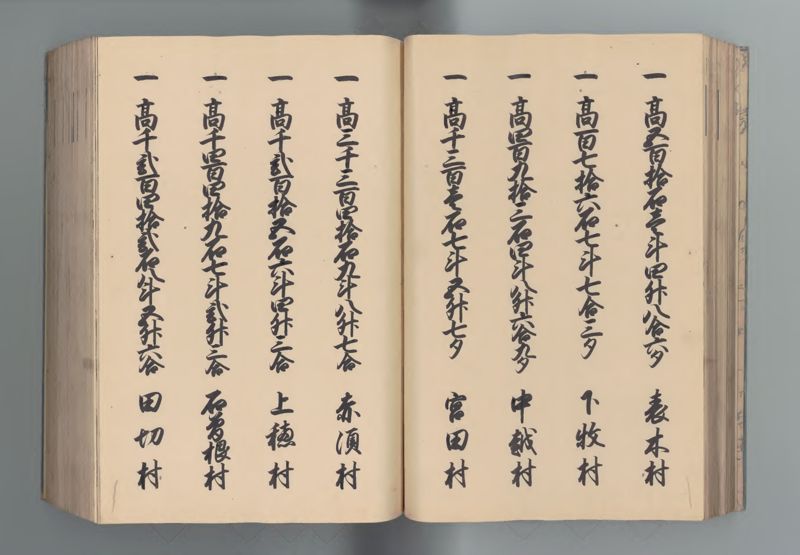 一 高五百拾石壱斗四升八合六夕 表木村
一 高百七拾六石七斗七合三夕 下牧村
一 高四百九拾三石四斗八升六合九夕 中越村
一 高千三百壱石七斗五升七夕 宮田村
一 高三千三百四拾石九斗八升七合 赤須村
一 高千弐百拾五石六斗四升三合 上穂村
一 高千四百四拾九石七斗弐升三合 石曽根村
一 高千弐百四拾弐石八斗五升六合 田切村